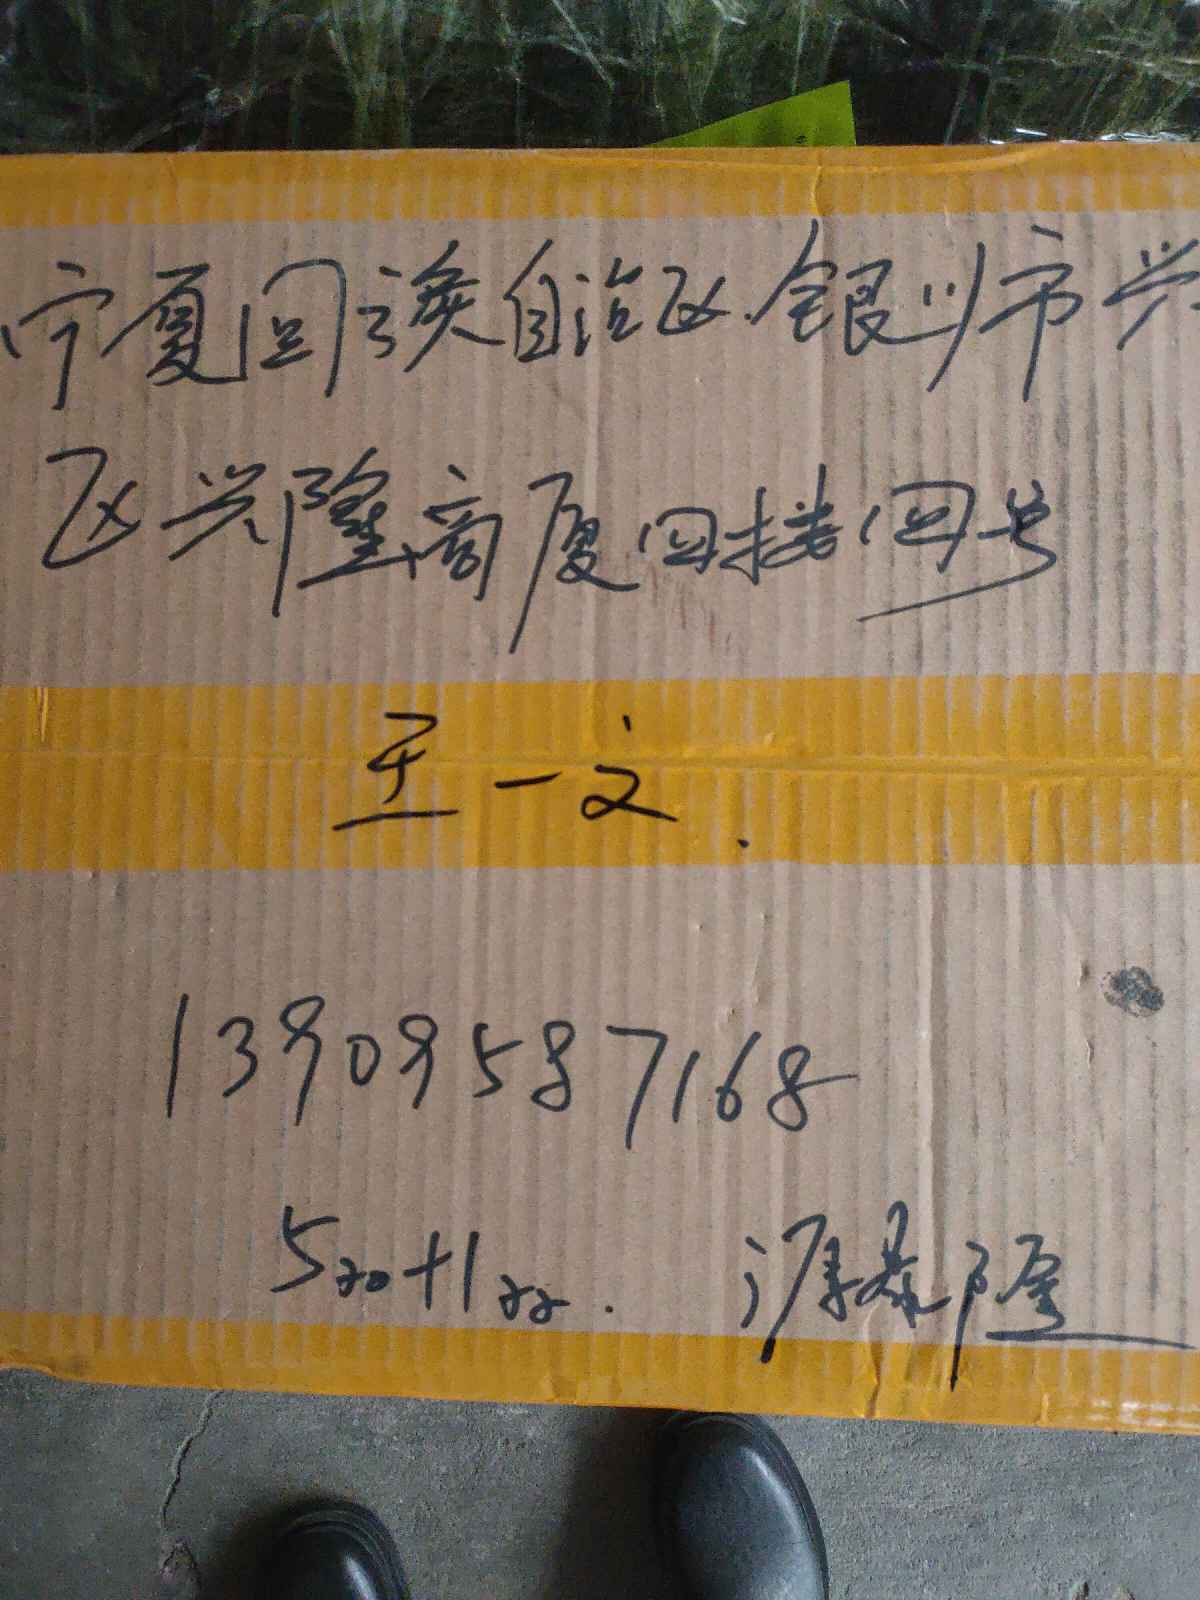 宁夏回族自治区银川市兴
区兴隆商厦四楼四号
王一文.
13909587168
520+122.
隆